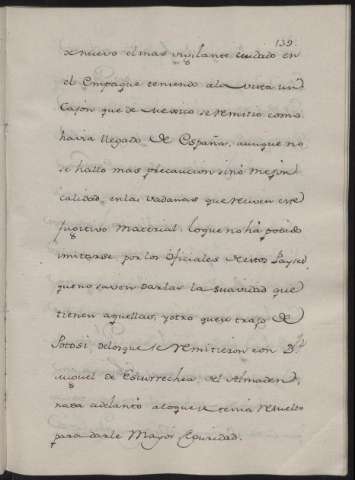 139.
de nuevo el mas vigilante cuidado en
el Empaque teniendo ala vista un
Cajón que de Mexico se remitio como
havia llegado de España, aunque no
se halló mas precaucion sino mejor
calidad, en las vadanas que reciven este
fugitivo Material, loque no há podido
imitarse por los Oficiales de estos Payses,
que no saven darlas la suavidad que
tienen aquellas, y otro que se trajo de
Potosi, delos que se remitieron con Dn.
Miguel de Escurrechea, del Almaden,
nada adelantó aloque se tenia resuelto
para darle Mayor seguridad.